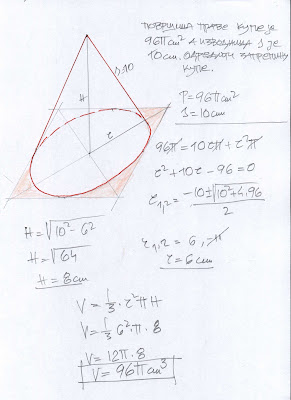 ПОВРШИНА ПРАВЕ КУПЕ ЈЕ
96πcm² А ИЗВОДНИЦА s ЈЕ
10cm. ОДРЕДИТИ ЗАПРЕМИНУ
КУПЕ.
P=96πcm²
s=10cm
s=10
H
r
96π=10rπ+r²π
r²+10r-96=0
r₁,₂=-10±√10²+4·96
2
r₁,₂=6,-16
r=6cm
H=√10²-6²
H=√64
H=8cm
V=1/3·r²πH
V=1/3 6²π·8
V=12π·8
V=96πcm³